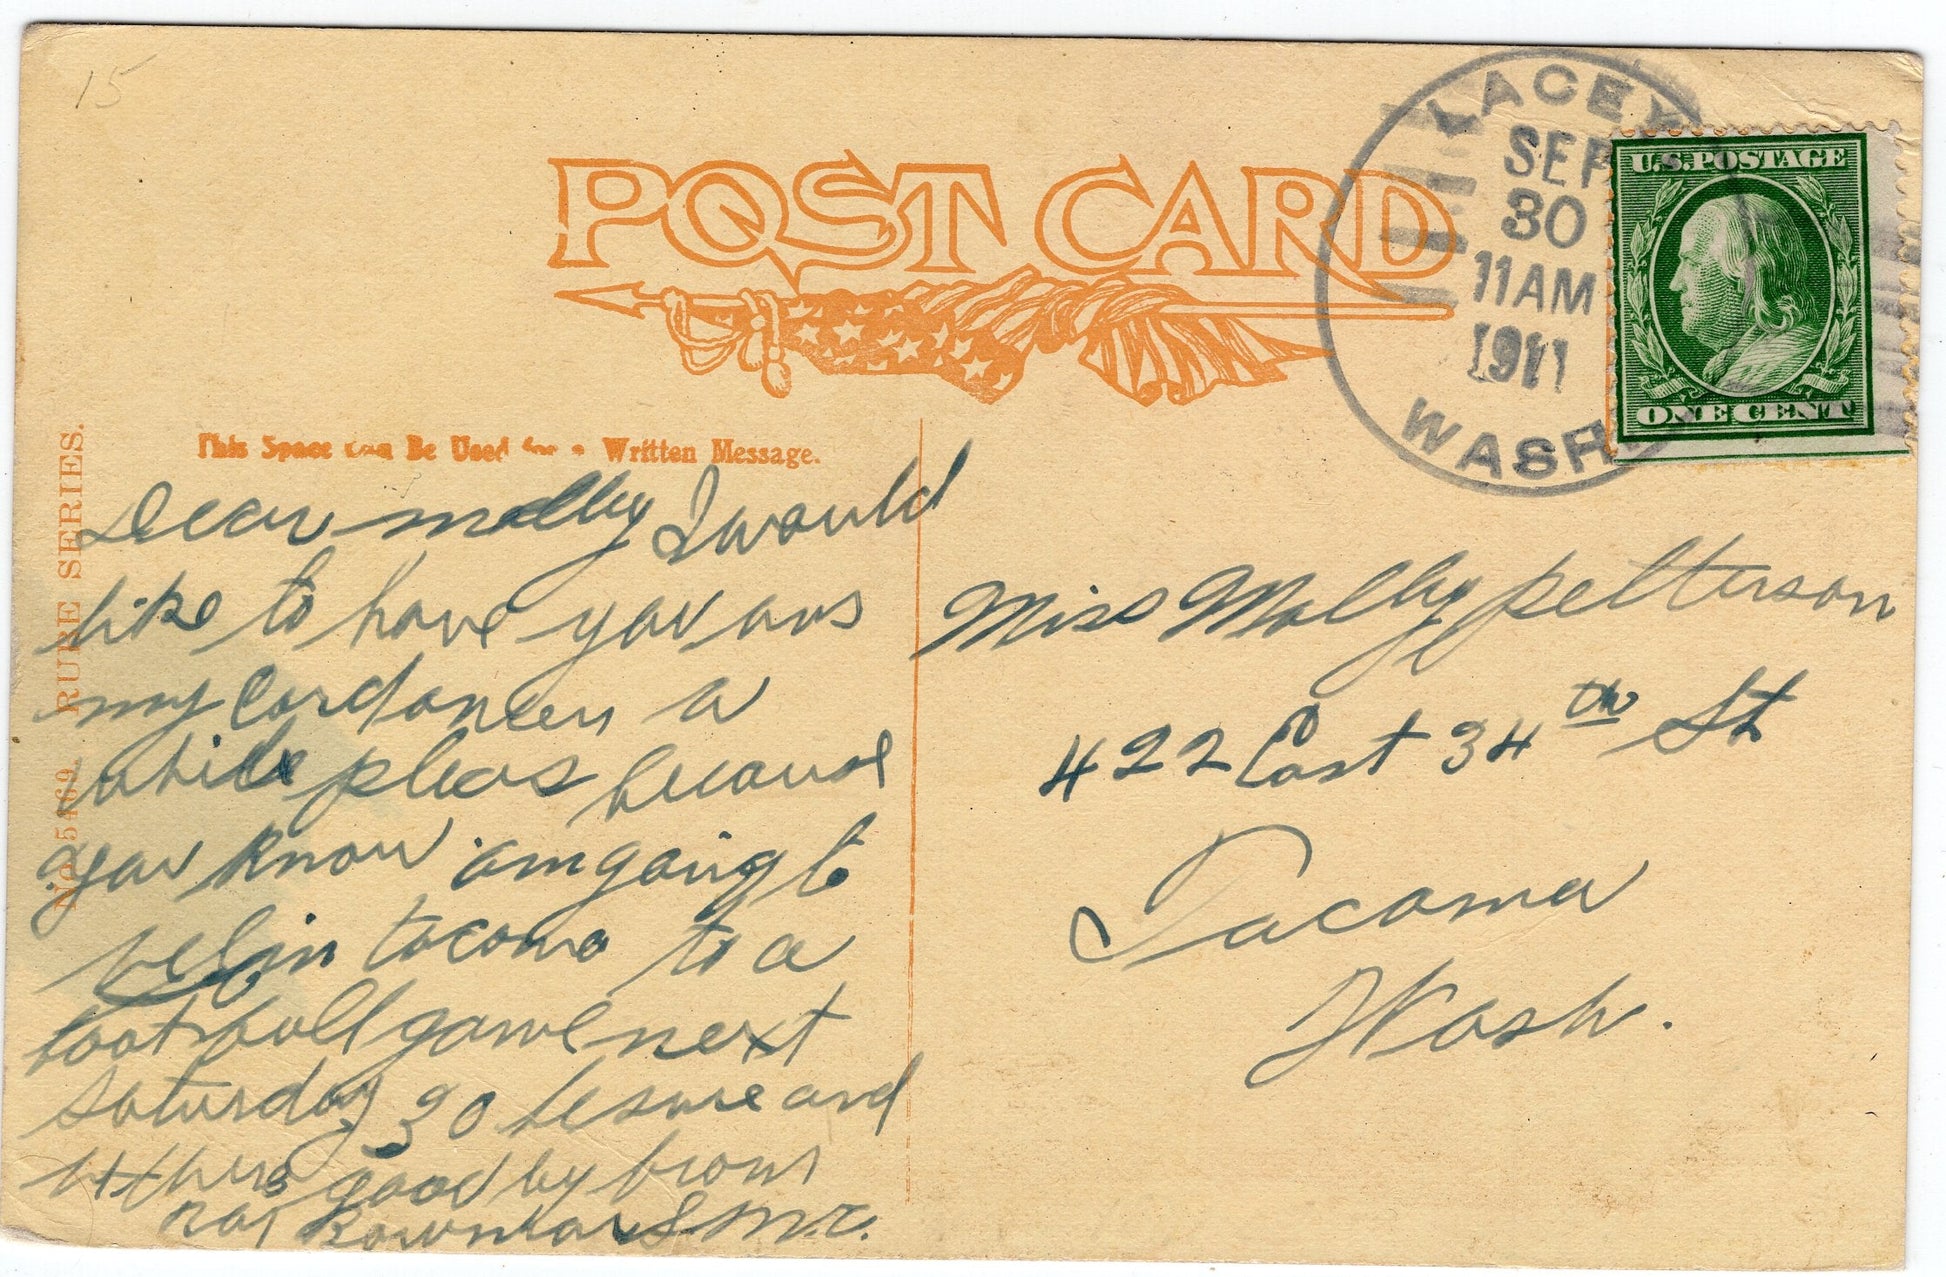 15
POST CARD
LACEY
SEP
30
11AM
1911
WASH
U.S. POSTAGE
ONE CENT
This Space Can Be Used for a Written Message.
No. 5469. RURE SERIES.
Dear molly I would
like to have you ans
my Card once in a
while pleas because
you know am going to
be in tacoma to a
foot ball game next
Saturday 30 be sure and
good by from
S.M.C.
Miss Molly pelterson
422 East 34th St
Tacoma
Wash.